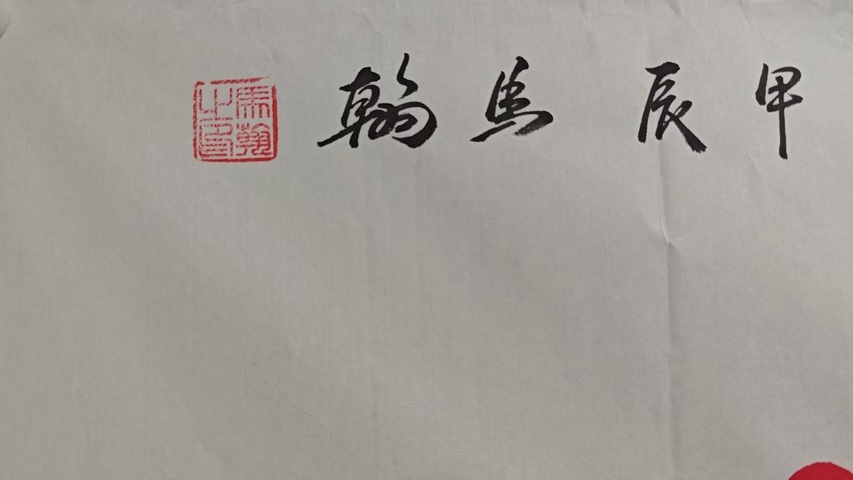 甲辰 馬翰
馬翰之印